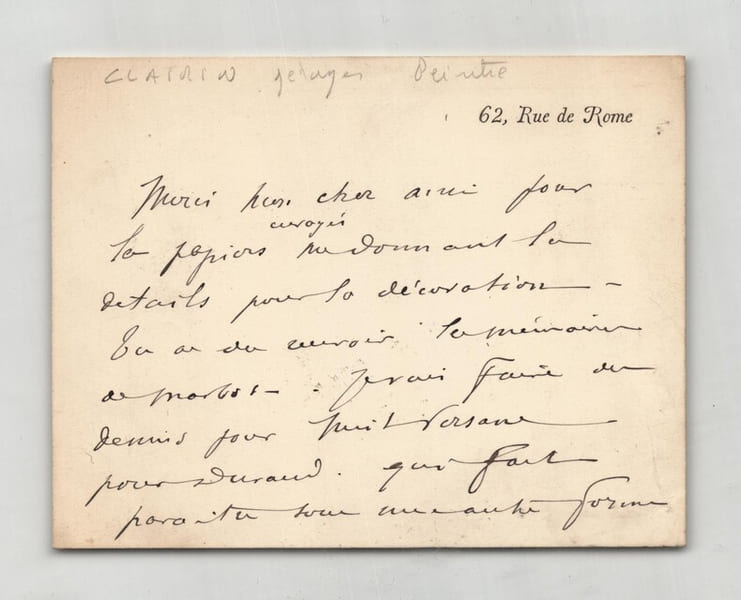 CLAIRIN georges Peintre
62, Rue de Rome
Merci mon cher ami pour
envoyés
les papiers me donnant les
details pour la décoration –
Tu as du recevoir les mémoires
de Marbot – . Je vais faire des
dessins pour
pour Durand . qui fait
paraitre sous une autre forme